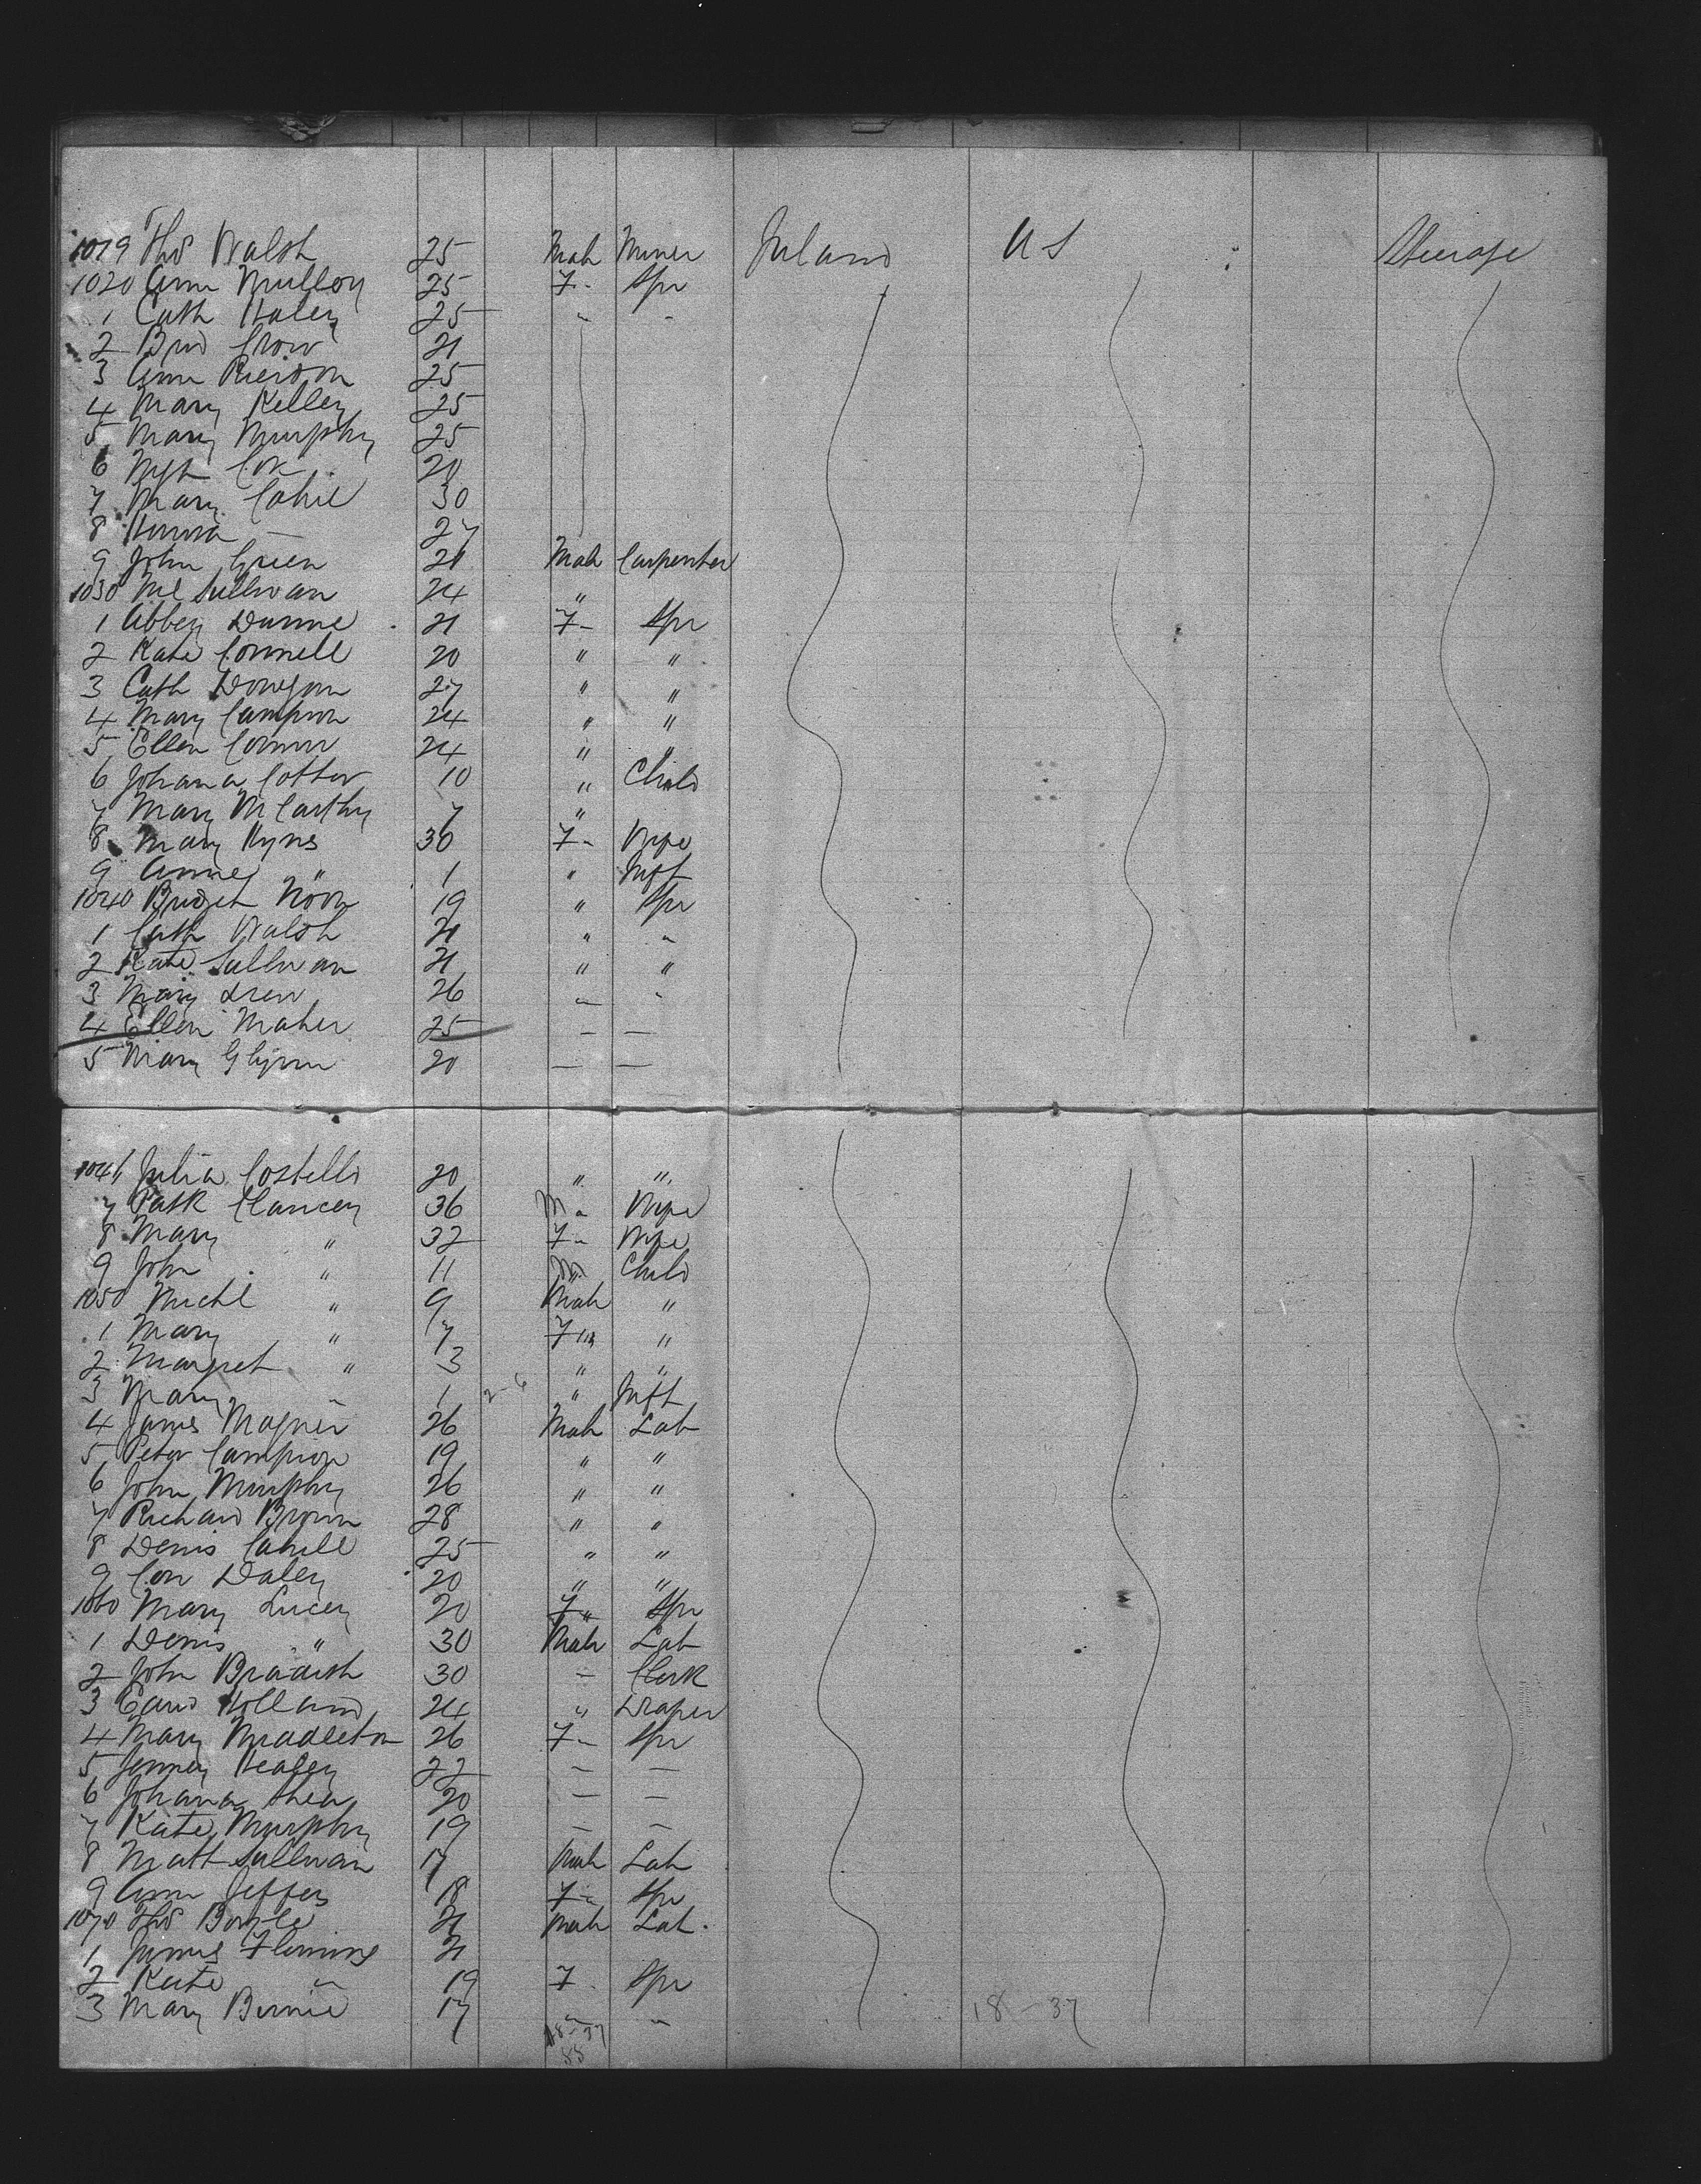 1019 Thos Walsh 25 Male Miner Ireland US Steerage
1020 Ann Mulloy 25 F- Spr
1 Cath Haley 25 " "
2 Brid Crow 21
3 Ann Rierdon 25
4 Mary Kelley 25
5 Mary Murphy 25
6 Mgt Cox 20
7 Mary Cahil 30
8 Honora — 27
9 John Green 21 Male Carpenter
1030 Ml Sullivan 24 "
1 Abbey Dunne 21 F- Spr
2 Kate Connell 20 " "
3 Cath Donegan 27 " "
4 Mary Campion 24 " "
5 Ellen Connor 24 " "
6 Johana Cotter 10 " Child
7 Mary McCarthy 7 "
8 Mary Hyns 30 F- Wife
9 Anne " 1 " Inft
1040 Bridget 19 " Spr
1 Cath Walsh 21 " "
2 Kate Sullivan 21 " "
3 Mary Drew 26 " "
4 Ellen Maher 25 — —
5 Mary Glynn 20 — —
1046 Julia Costello 20 " "
7 Patk Clancey 36 M " Wife
8 Mary " 32 F " Wife
9 John " 11 M " Child
1050 Michl " 9 Male "
1 Mary " 7 F "
2 Margret " 3 " "
3 Mary " 1 " Inft
4 James Magner 26 Male Lab
5 Peter Campion 19 " "
6 John Murphy 26 " "
7 Richard Brown 28 " "
8 Denis Cahill 25 " "
9 Con Daley 20 " "
1060 Mary Lucey 20 F " Spr
1 Denis " 30 Male Lab
2 John Bradish 30 — Clerk
3 Edwd Holland 24 " Draper
4 Mary Middleton 26 F- Spr
5 Jenney Healey 22 — —
6 Johana Shea 20 — —
7 Kate Murphy 19 — —
8 Matt Sullivan 17 Male Lab
9 Ann Jeffers 18 F- Spr
1070 Thos Boyle 21 Male Lab.
1 James Fleming 21
2 Kate " 19 F- Spr
3 Mary Birnie 17 " "
18 - 37